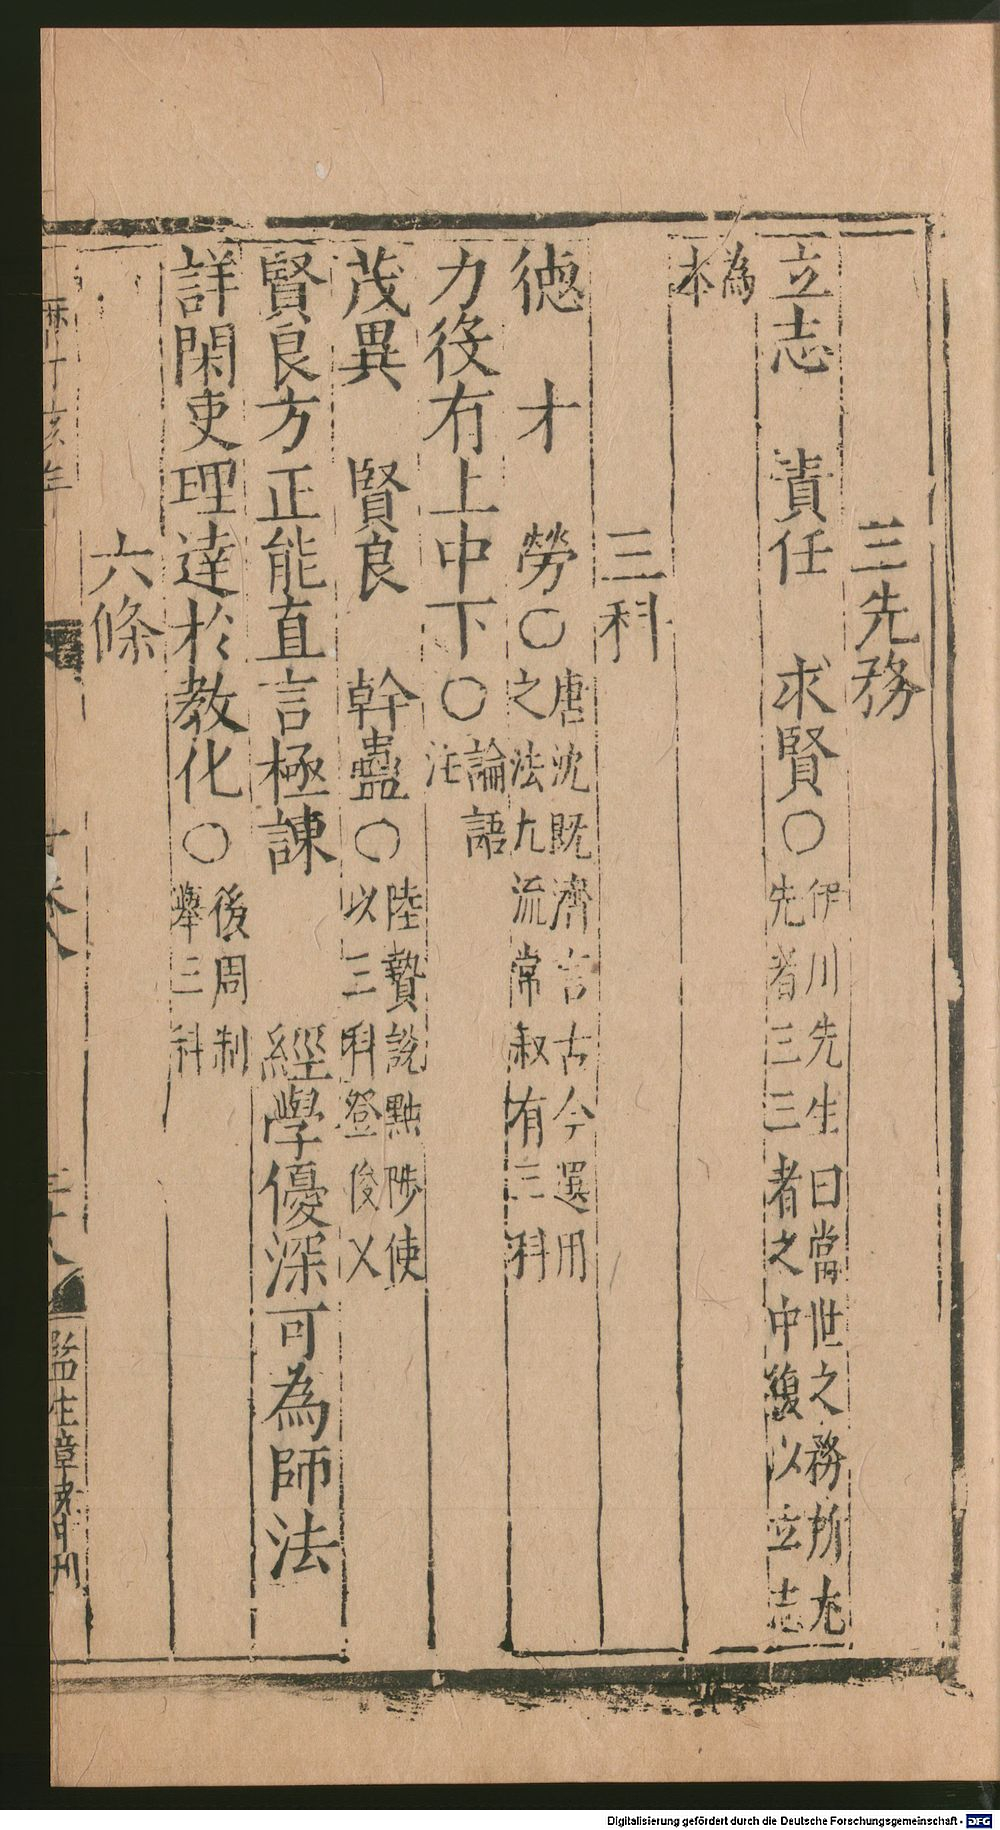 三先務
立志　責任　求賢〇伊川先生曰當世之務所尤
先者三三者之中復以立志
為
本
三科
德　才　勞〇唐沈既濟言古今選用
之法九流常叙有三科
力役有上中下〇論語
注
茂異　賢良　幹蠱〇陸贄說黜陟使
以三科登俊乂
賢良方正能直言極諫　經學優深可為師法
詳閑吏理達於教化〇後周制
舉三科
六條
監生章
Digitalisierung gefördert durch die Deutsche Forschungsgemeinschaft - DFG